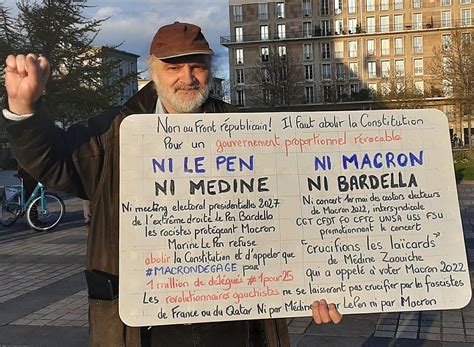 Non au Front républicain! Il faut abolir la Constitution
Pour un gouvernement proportionnel révocable
NI LE PEN
NI MEDINE
Ni meeting electoral presidentielles 2027
de l'extrême droite Le Pen Bardella
les racistes protégeant Macron
Marine Le Pen refuse
abolir la Constitution et d'appeler
#MACRONDEGAGE par
1 million de délégués #1pour25
NI MACRON
NI BARDELLA
Ni concert 1er mai des castors électeurs
de Macron 2022, intersyndicale
CGT CFDT FO CFTC UNSA USS FSU
promotionnent le concert
"crucifions les laïcards"
de Médine Zaouiche
qui a appelé à voter Macron 2022
Les révolutionnaires gauchistes ne se laisseront pas crucifier par les fascistes
de France ou du Qatar Ni par Médine ni par Le Pen ni par Macron